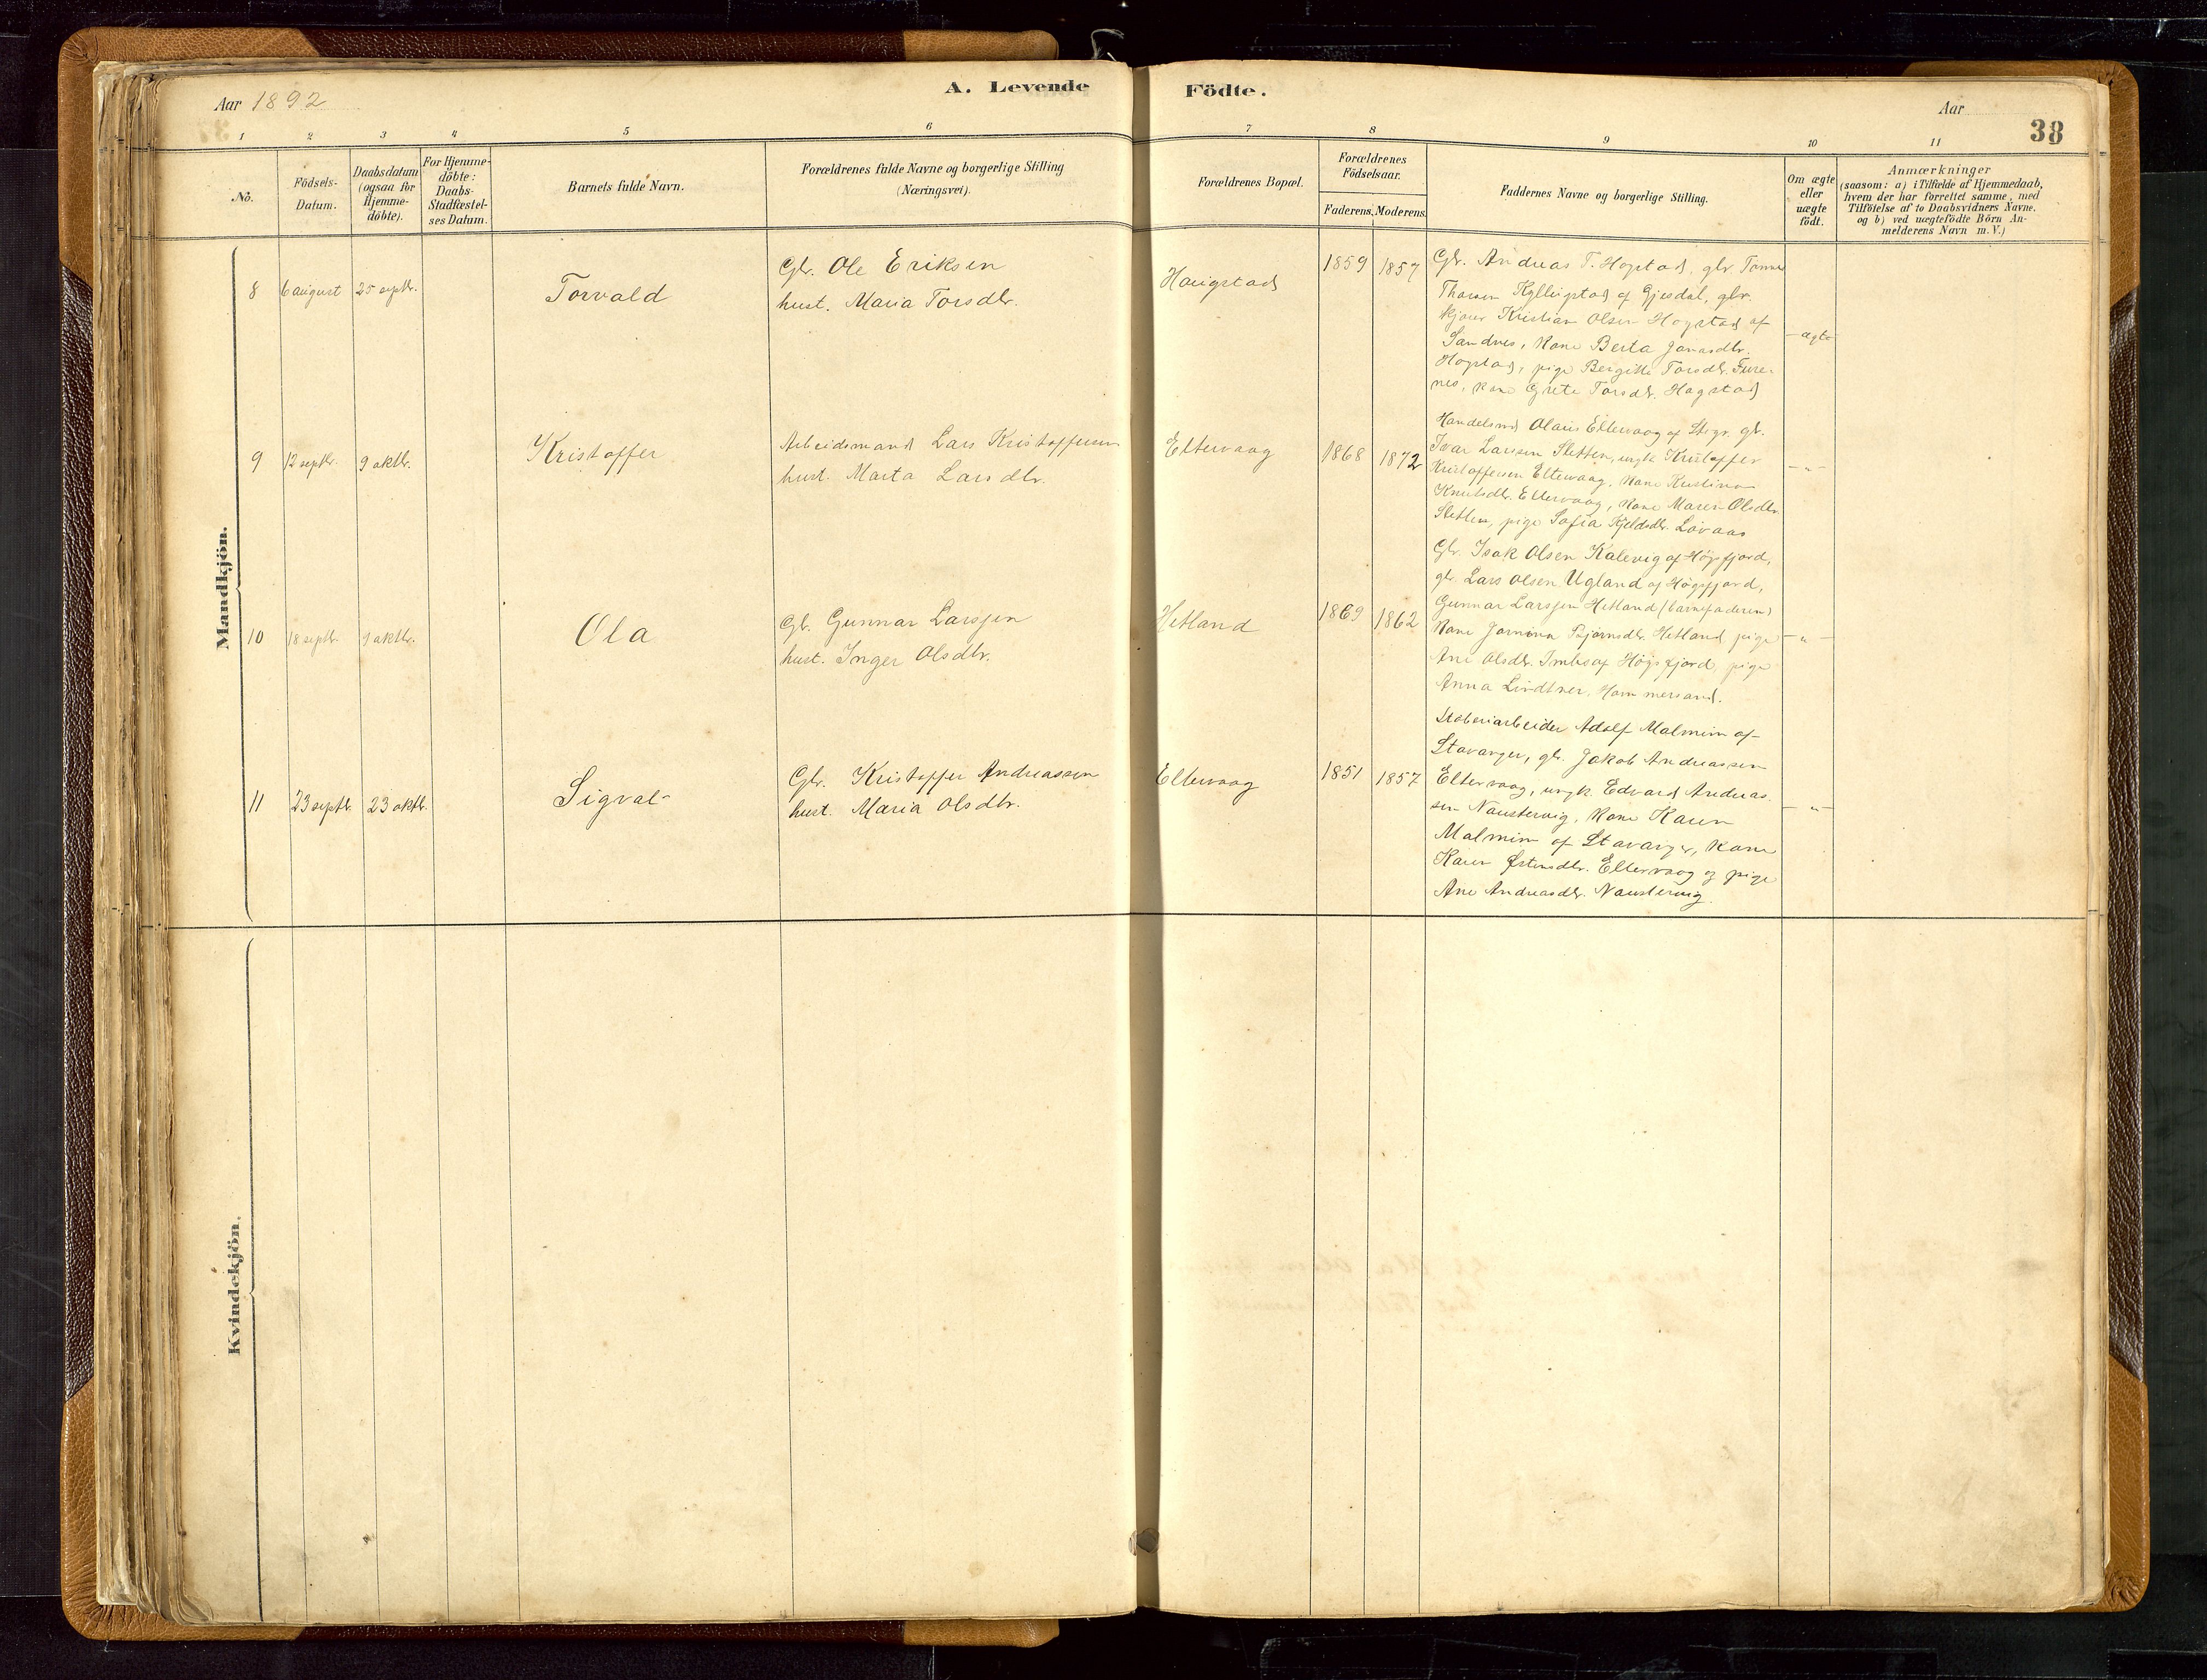 Aar 1892
A. Levende Födte.
Aar
38
1 2 3 4 5 6 7 8 9 10 11
No.
Födsels-
Datum.
Daabsdatum
(ogsaa for
Hjemme-
döbte).
For Hjemme-
döbte:
Daabs-
Stadfæstel-
ses Datum.
Barnets fulde Navn.
Forældrenes fulde Navne og borgerlige Stilling
(Næringsvei).
Forældrenes Bopæl.
Forældrenes
Födselsaar.
Faderens. Moderens.
Faddernes Navne og borgerlige Stilling.
Om ægte
eller
uægte
födt.
Anmærkninger
(saasom: a) i Tilfælde af Hjemmedaab,
hvem der har forrettet samme, med
Tilföielse af to Daabsvidners Navne.
og b) ved uægtefödte Börn An-
melderens Navn m.V.)
Mandkjön.
8 6 august 25 septbr. Torvald
Gbr. Ole Eriksen
hust. Maria Torsdtr.
Haugstad 1859 1857
Gbr. Andreas T. Hogstad, gbr Tønnes
Kylligstad af Gjesdal, gbr.
Kristian Olsen Hogstad af
Sandnes, Kone Berta Jonasdtr.
Hogstad, pige Bergitte Torsdtr. Fure-
nes, kone Grete Torsdtr. Hogstad
ægte
9 12 septbr. 9 oktbr. Kristoffer
Arbeidsmand Lars Kristoffersen
hust. Marta Larsdtr.
Eltervaag 1868 1872
Handelsmd Olaus Eltervaag af Stvgr. gbr.
Ivar Larssen Sletten, ungk. Kristoffer
Kristoffersen Eltervaag, Kone Kristina
Knutsdtr. Eltervaag, Kone Maren Olsdtr.
Sletten, pige Sofia Kjeldsdtr. Lovaas
-"-
10 18 septbr. 9 oktbr. Ola
Gbr. Gunnar Larssen
hust. Inger Olsdtr.
Hetland 1869 1862
Gbr. Isak Olsen Kalevig af Høgsfjord,
gbr. Lars Olsen Ugland af Høgsfjord,
Gunnar Larssen Hetland (barnefaderen)
Kone Jornina Bjørnsdtr. Hetland, pige
Ane Olsdtr. Imbs af Høgsfjord, pige
Anna Lindtner, Hommersand.
-"-
11 23 septbr. 23 oktbr. Sigval
Gbr. Kristoffer Andreassen
hust. Maria Olsdtr.
Eltervaag 1851 1857
Støberiarbeider Adolf Malmin af
Stavanger, gbr. Jakob Andreassen
Eltervaag, ungk. Edvard Andreas-
sen Naustervig, Kone Karen
Malmin af Stavanger, Kone
Karen Østensdtr. Eltervaag og pige
Ane Andreasdtr. Naustervig.
-"-
Kvindekjön.